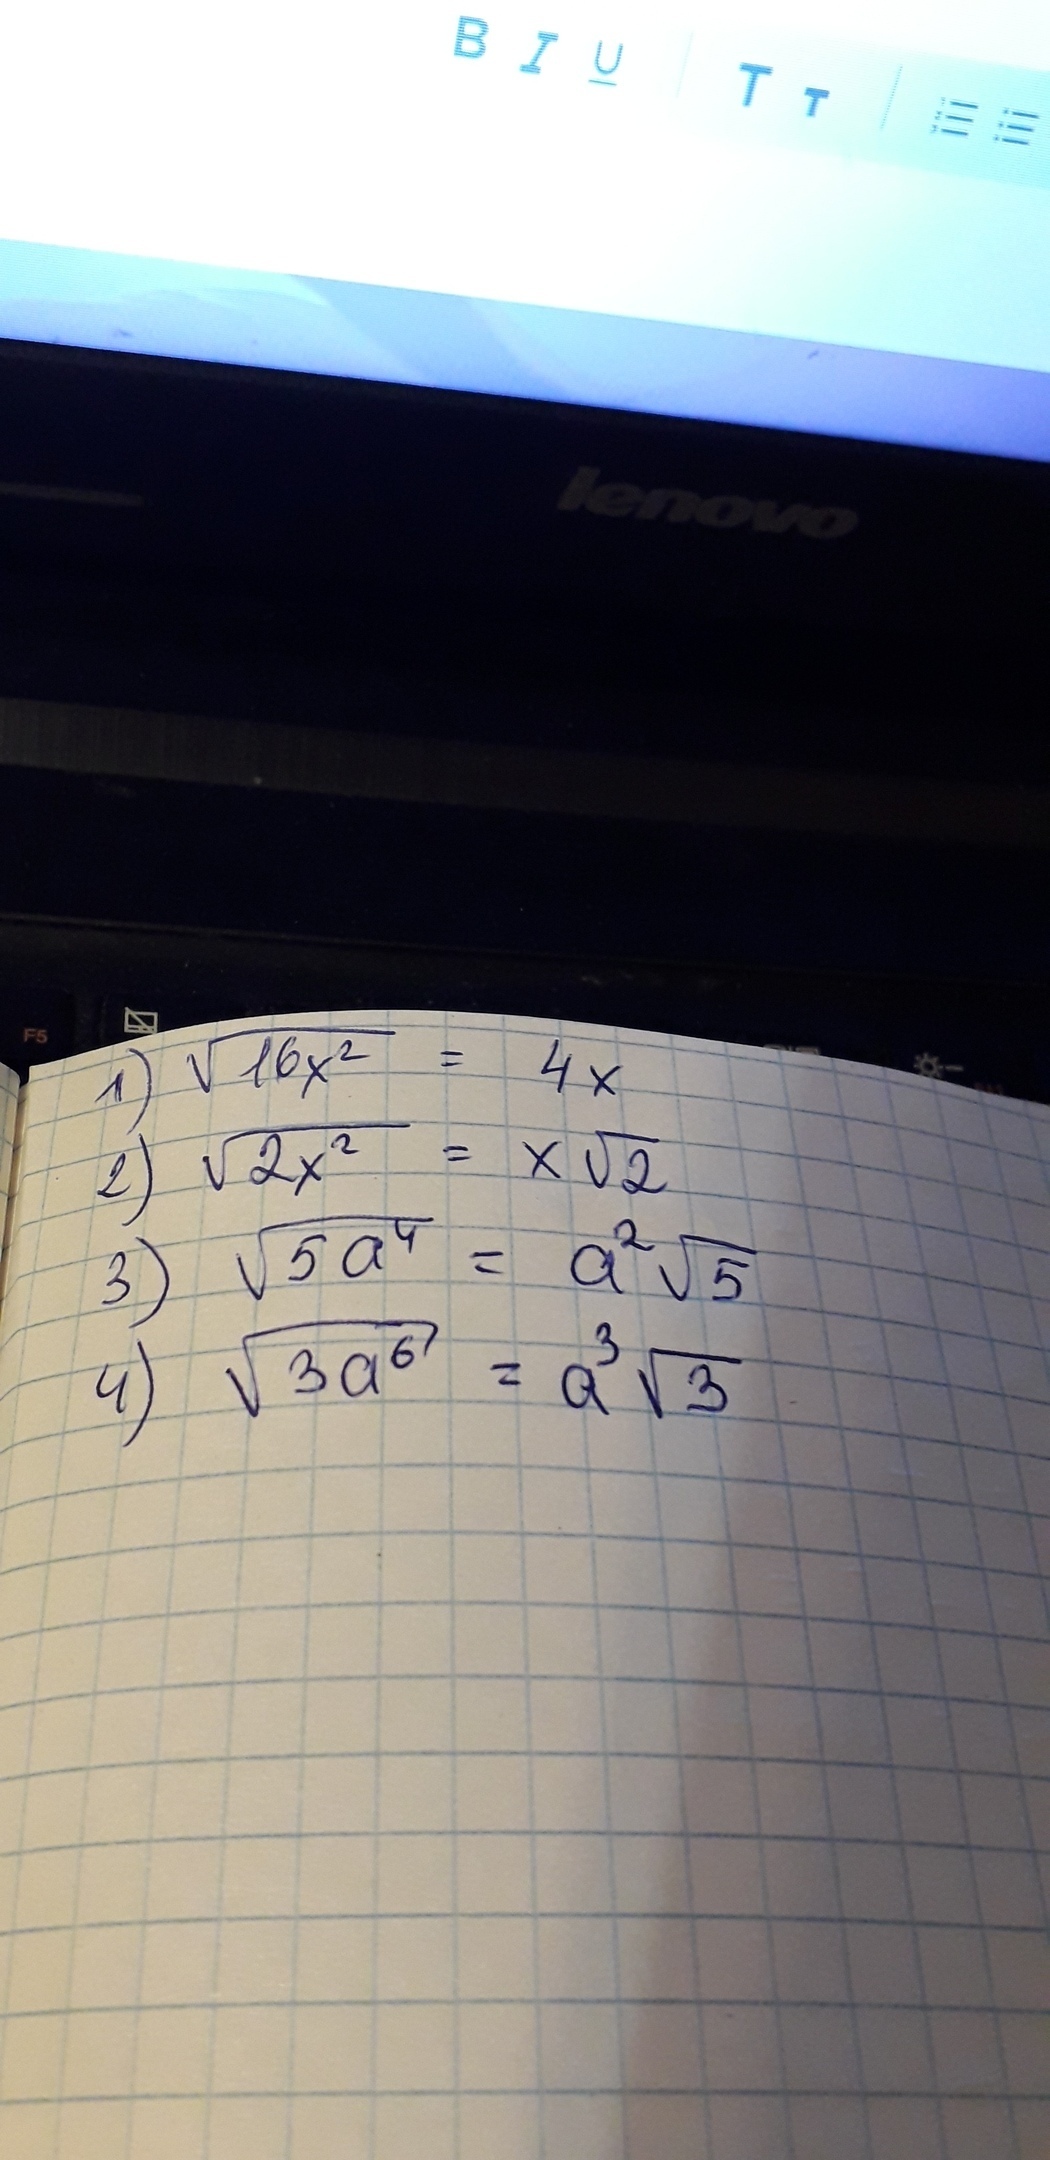 B I U T T
lenovo
F5
1) √16x² = 4x
2) √2x² = x√2
3) √5a⁴ = a²√5
4) √3a⁶ = a³√3